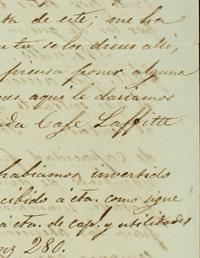 ta de este; me ha
solos dicus alli,
prensa poner alguna
aqui le dariamos
Cafe Laffitte
habiamos invertido
cibido á cta. como sigue
á cta. de cap. y utilidades
280.